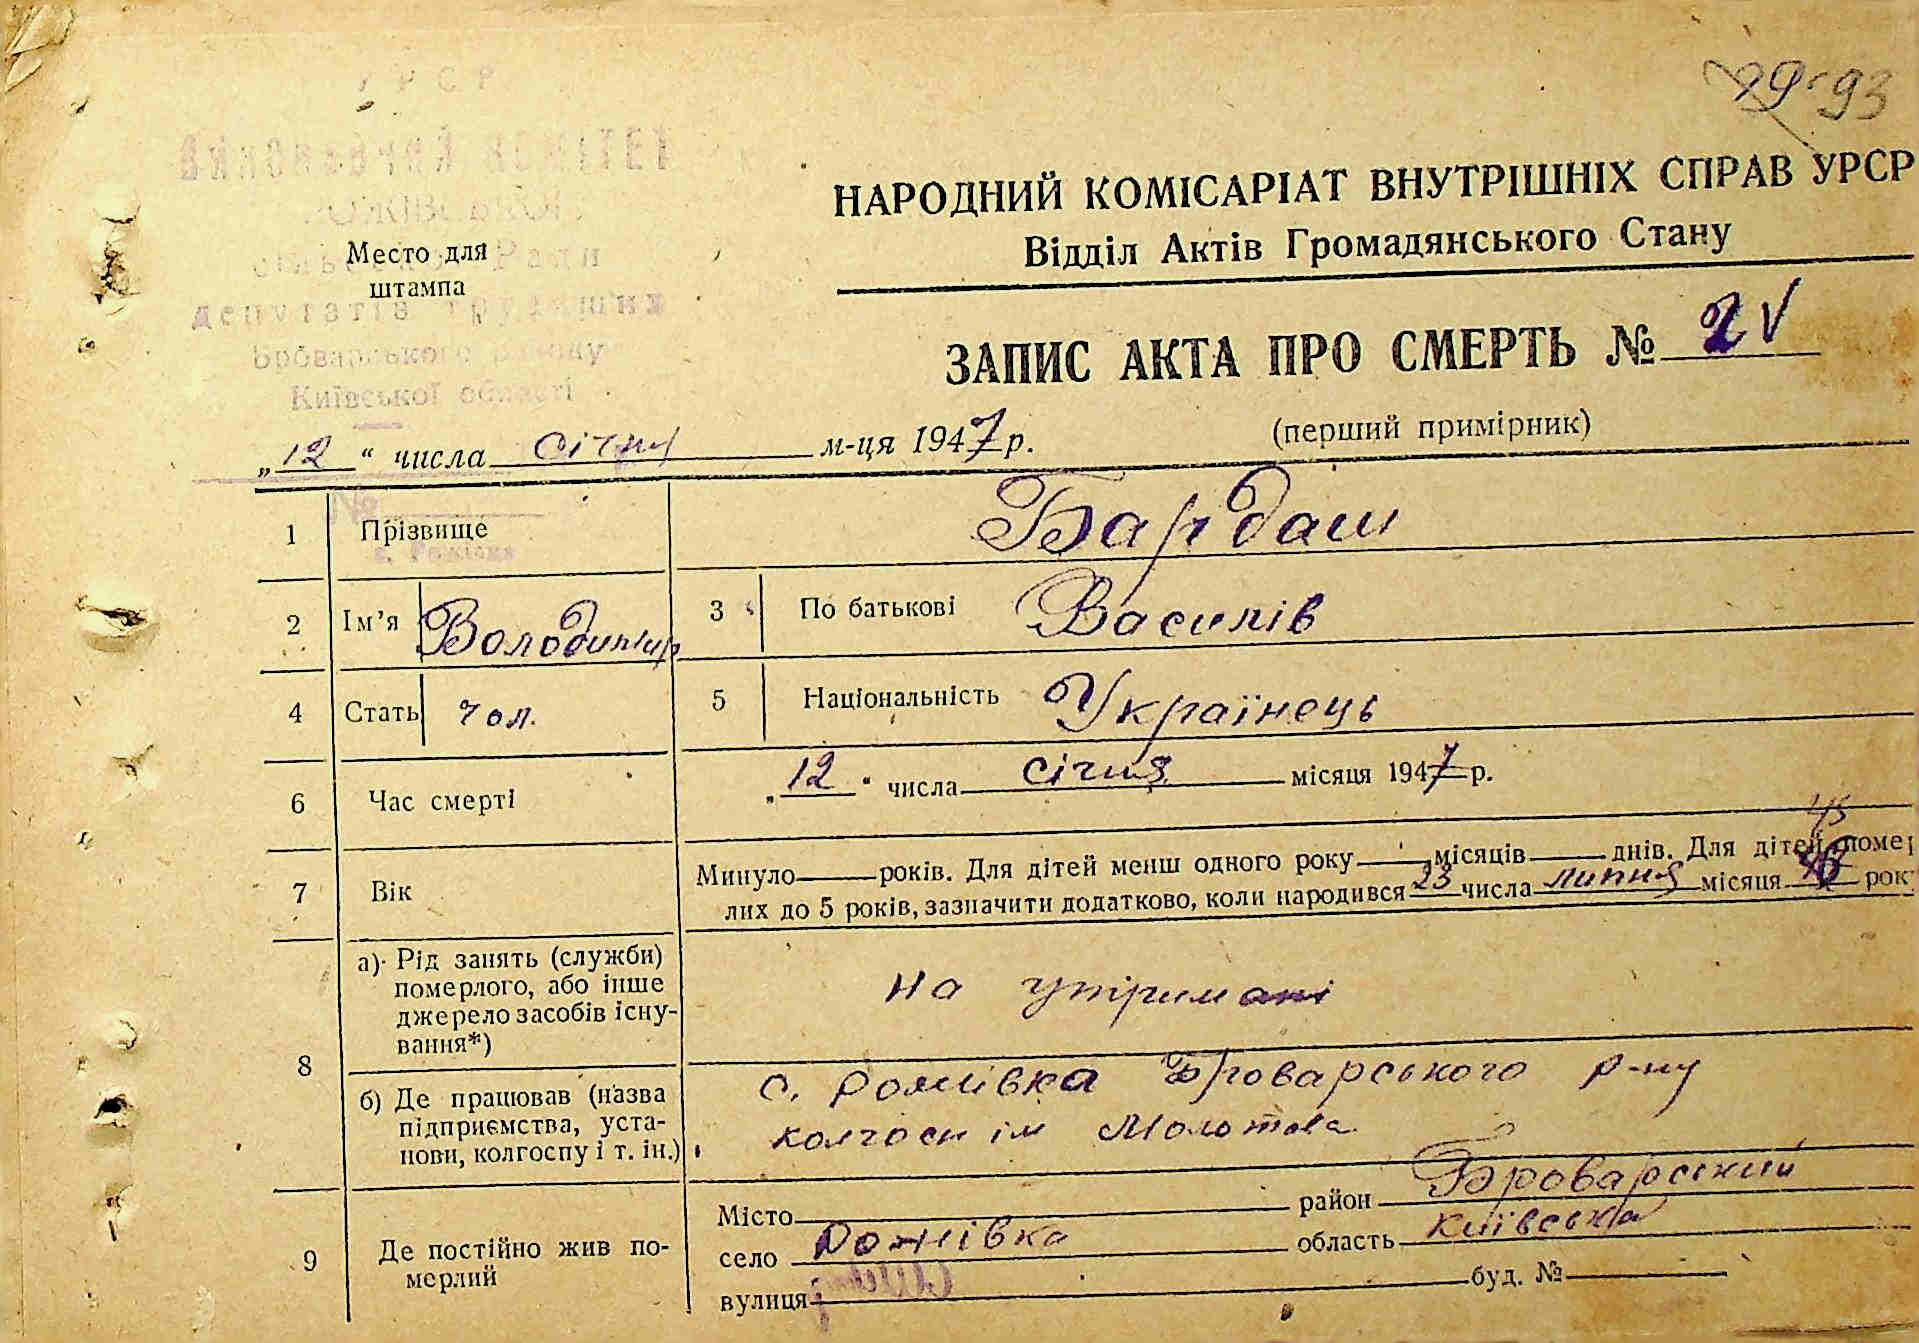 УРСР
Виконавчий комітет
Рожівської
сільської Ради
депутатів трудящих
Броварського району
Київської області
№
с. Рожівка
93
Место для
штампа
НАРОДНИЙ КОМІСАРІАТ ВНУТРІШНІХ СПРАВ УРСР
Відділ Актів Громадянського Стану
ЗАПИС АКТА ПРО СМЕРТЬ № 2
„12“ числа січня м-ця 1947 р. (перший примірник)
1 Прізвище Бардаш
2 Ім'я Володимир 3 По батькові Василів
4 Стать чол. 5 Національність Українець
6 Час смерті „12“ числа січня місяця 1947 р.
7 Вік Минуло роківˌ. Для дітей менш одного року місяців днів. Для дітей помер
45
лих до 5 років, зазначити додатково, коли народився 23 числа липня місяця рок
8 а) Рід занять (служби)
померлого, або інше
джерело засобів існу-
вання*)
на утримані
б) Де працював (назва
підприємства, уста-
нови, колгоспу і т. ін.)
с. Рожівка Броварського р-ну
колгосп ім Молотова
9 Де постійно жив по-
мерлий
Місто район Броварський
село Рожівка область Київська
вулиця буд. №